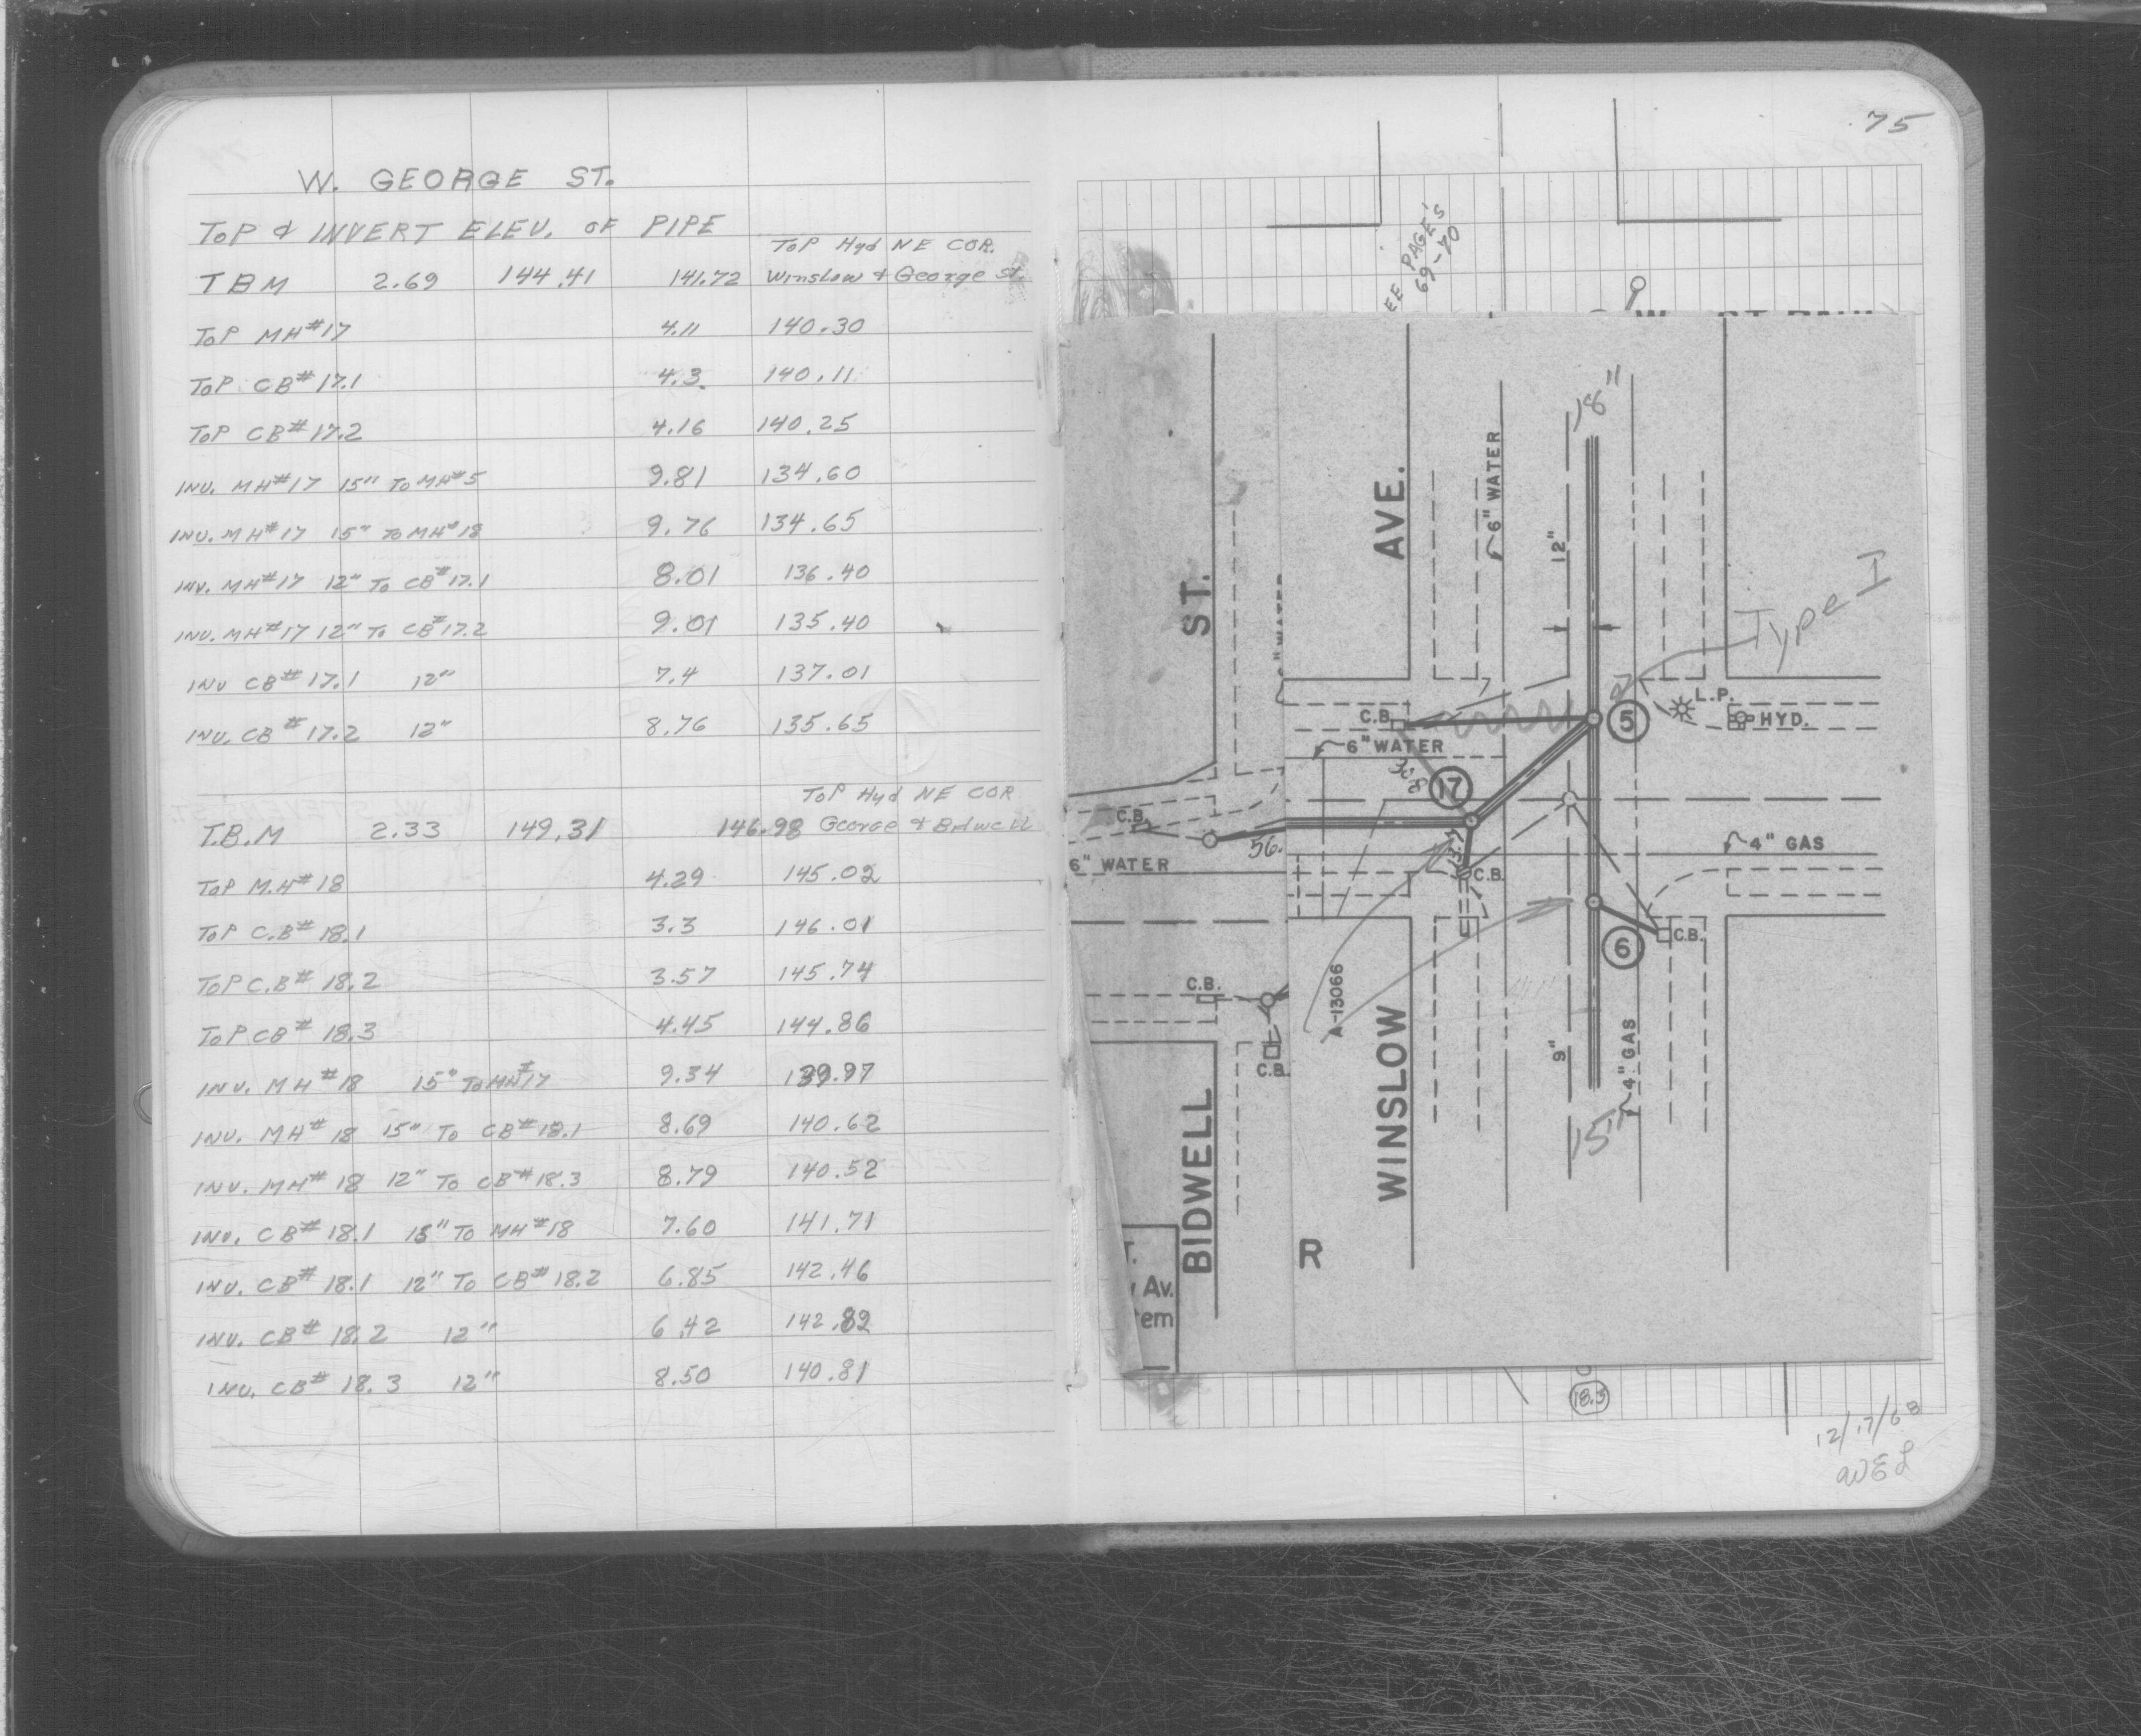 W. GEORGE ST.
TOP & INVERT ELEV. OF PIPE
TOP Hyd NE COR.
TBM 2.69 144.41 141.72 Winslow & George St.
TOP MH#17 4.11 140.30
TOP CB#17.1 4.3 140.11
TOP CB#17.2 4.16 140.25
INV. MH#17 15" TO MH#5 9.81 134.60
INV. MH#17 15" TO MH#18 9.76 134.65
INV. MH#17 12" TO CB#17.1 8.01 136.40
INV. MH#17 12" TO CB#17.2 9.01 135.40
INV CB#17.1 12" 7.4 137.01
INV. CB#17.2 12" 8.76 135.65
TOP Hyd NE COR
T.B.M 2.33 149.31 146.98 George & Bidwell
TOP M.H#18 4.29 145.02
TOP C.B#18.1 3.3 146.01
TOP C.B#18.2 3.57 145.74
TOP CB#18.3 4.45 144.86
INV. MH#18 15" TO MH#17 9.34 139.97
INV. MH#18 15" TO CB#18.1 8.69 140.62
INV. MH#18 12" TO CB#18.3 8.79 140.52
INV. CB#18.1 15" TO MH#18 7.60 141.71
INV. CB#18.1 12" TO CB#18.2 6.85 142.46
INV. CB#18.2 12" 6.42 142.89
INV. CB#18.3 12" 8.50 140.81
75
EE PAGE'S
69-70
18"
AVE.
6" WATER
12"
ST.
Type I
L.P.
C.B.
5
HYD.
6" WATER
17
C.B.
56.
6" WATER
4" GAS
C.B.
C.B.
6
A-13066
C.B.
C.B.
WINSLOW
9"
4" GAS
15"
BIDWELL
R
T.
Av.
tem
18.3
12/17/68
WEL